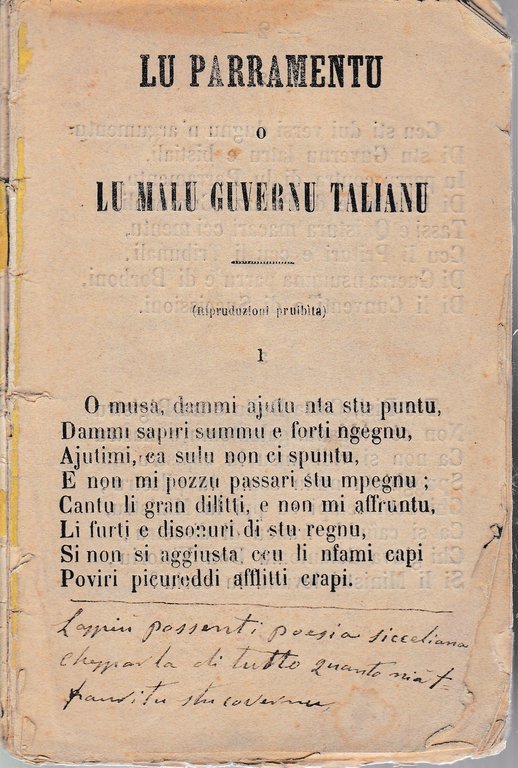 LU PARRAMENTU
O
LU MALU GUVERNU TALIANU
(Ripruduzioni pruibita)
1
O musa, dammi ajutu nta stu puntu,
Dammi sapiri summu e forti ngegnu,
Ajutimi, ca sulu non ci spuntu,
E non mi pozzu passari stu mpegnu ;
Cantu li gran dilitti, e non mi affruntu,
Li furti e disonuri di stu regnu,
Si non si aggiusta ccu li nfami capi
Poviri picureddi afflitti crapi.
possenti poesia sicceliana
di tutto quanto
stu covernu